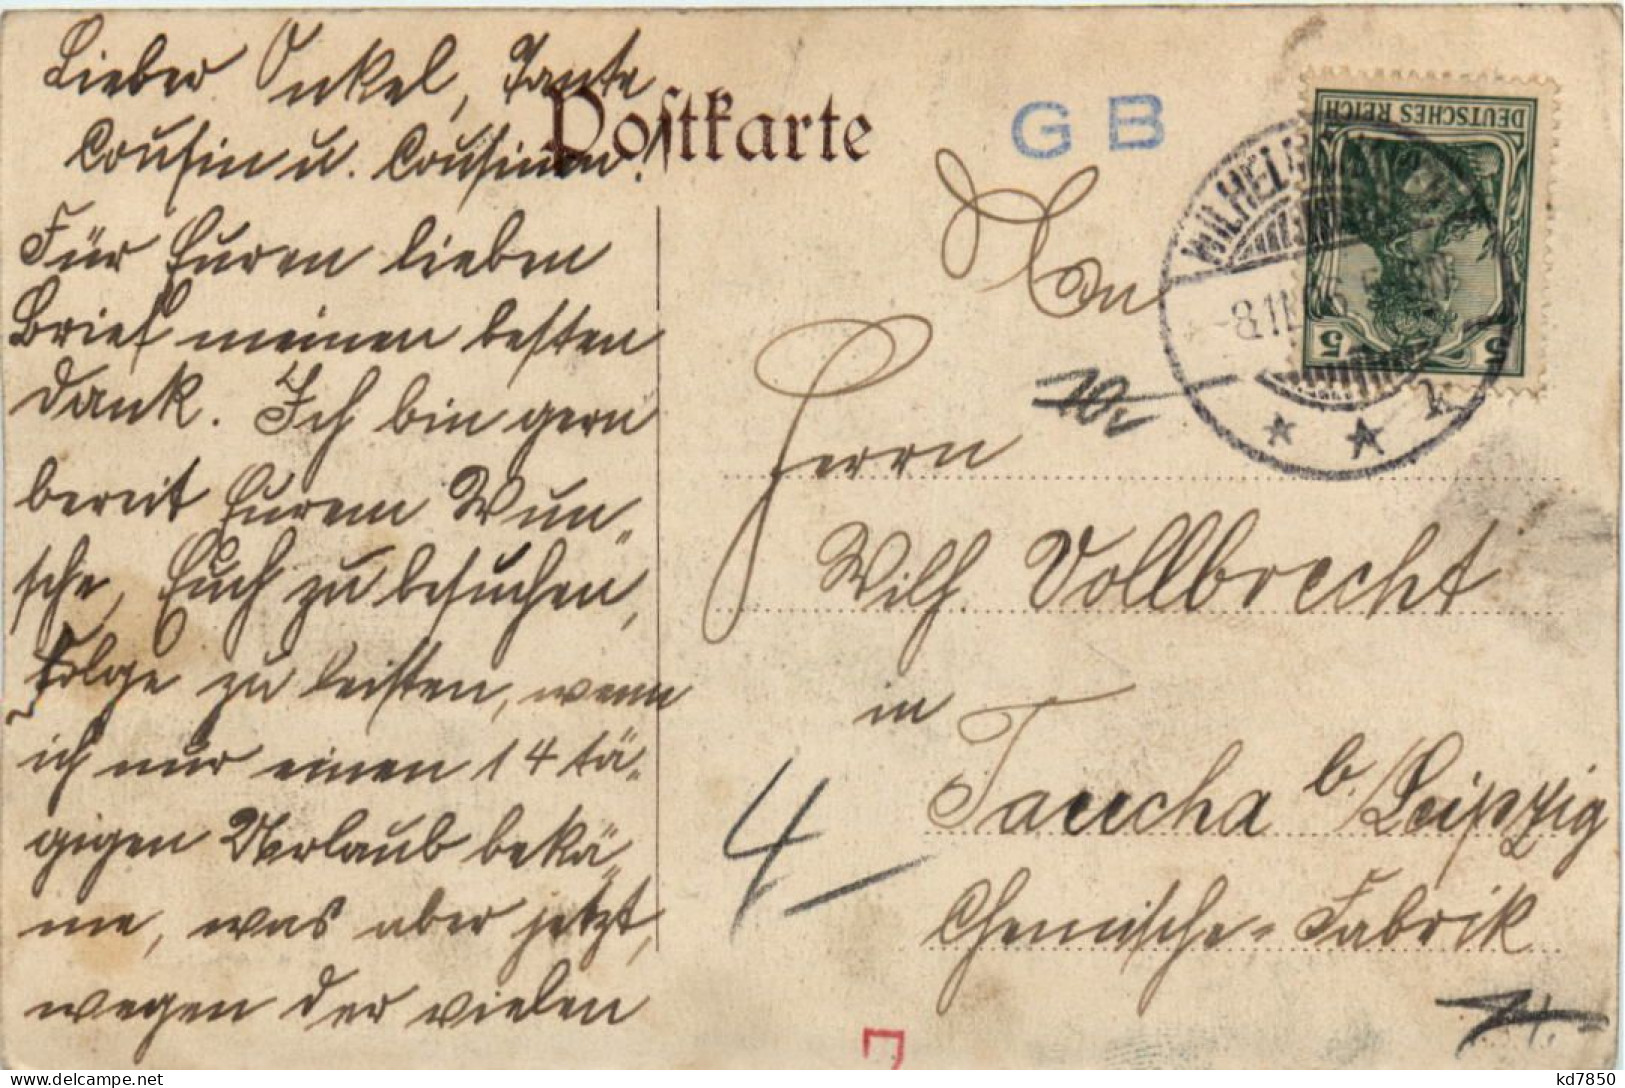 Lieber Onkel, Tante
Cousin u. Cousinen!
Für Euren lieben
Brief meinen besten
Dank. Ich bin gern
bereit Eurem Wun„
sche, Euch zu besuchen,
Folge zu leisten, wenn
ich nur einen 14 tä„
gigen Urlaub bekä„
me, was aber jetzt,
wegen der vielen
Postkarte
G B
DEUTSCHES REICH
5 5
WILHELMSHAVEN
-8.11.
* * k
An
Herrn
Wilh. Vollbrecht
in
Taucha b/Leipzig
Chemische-Fabrik
4
kd7850